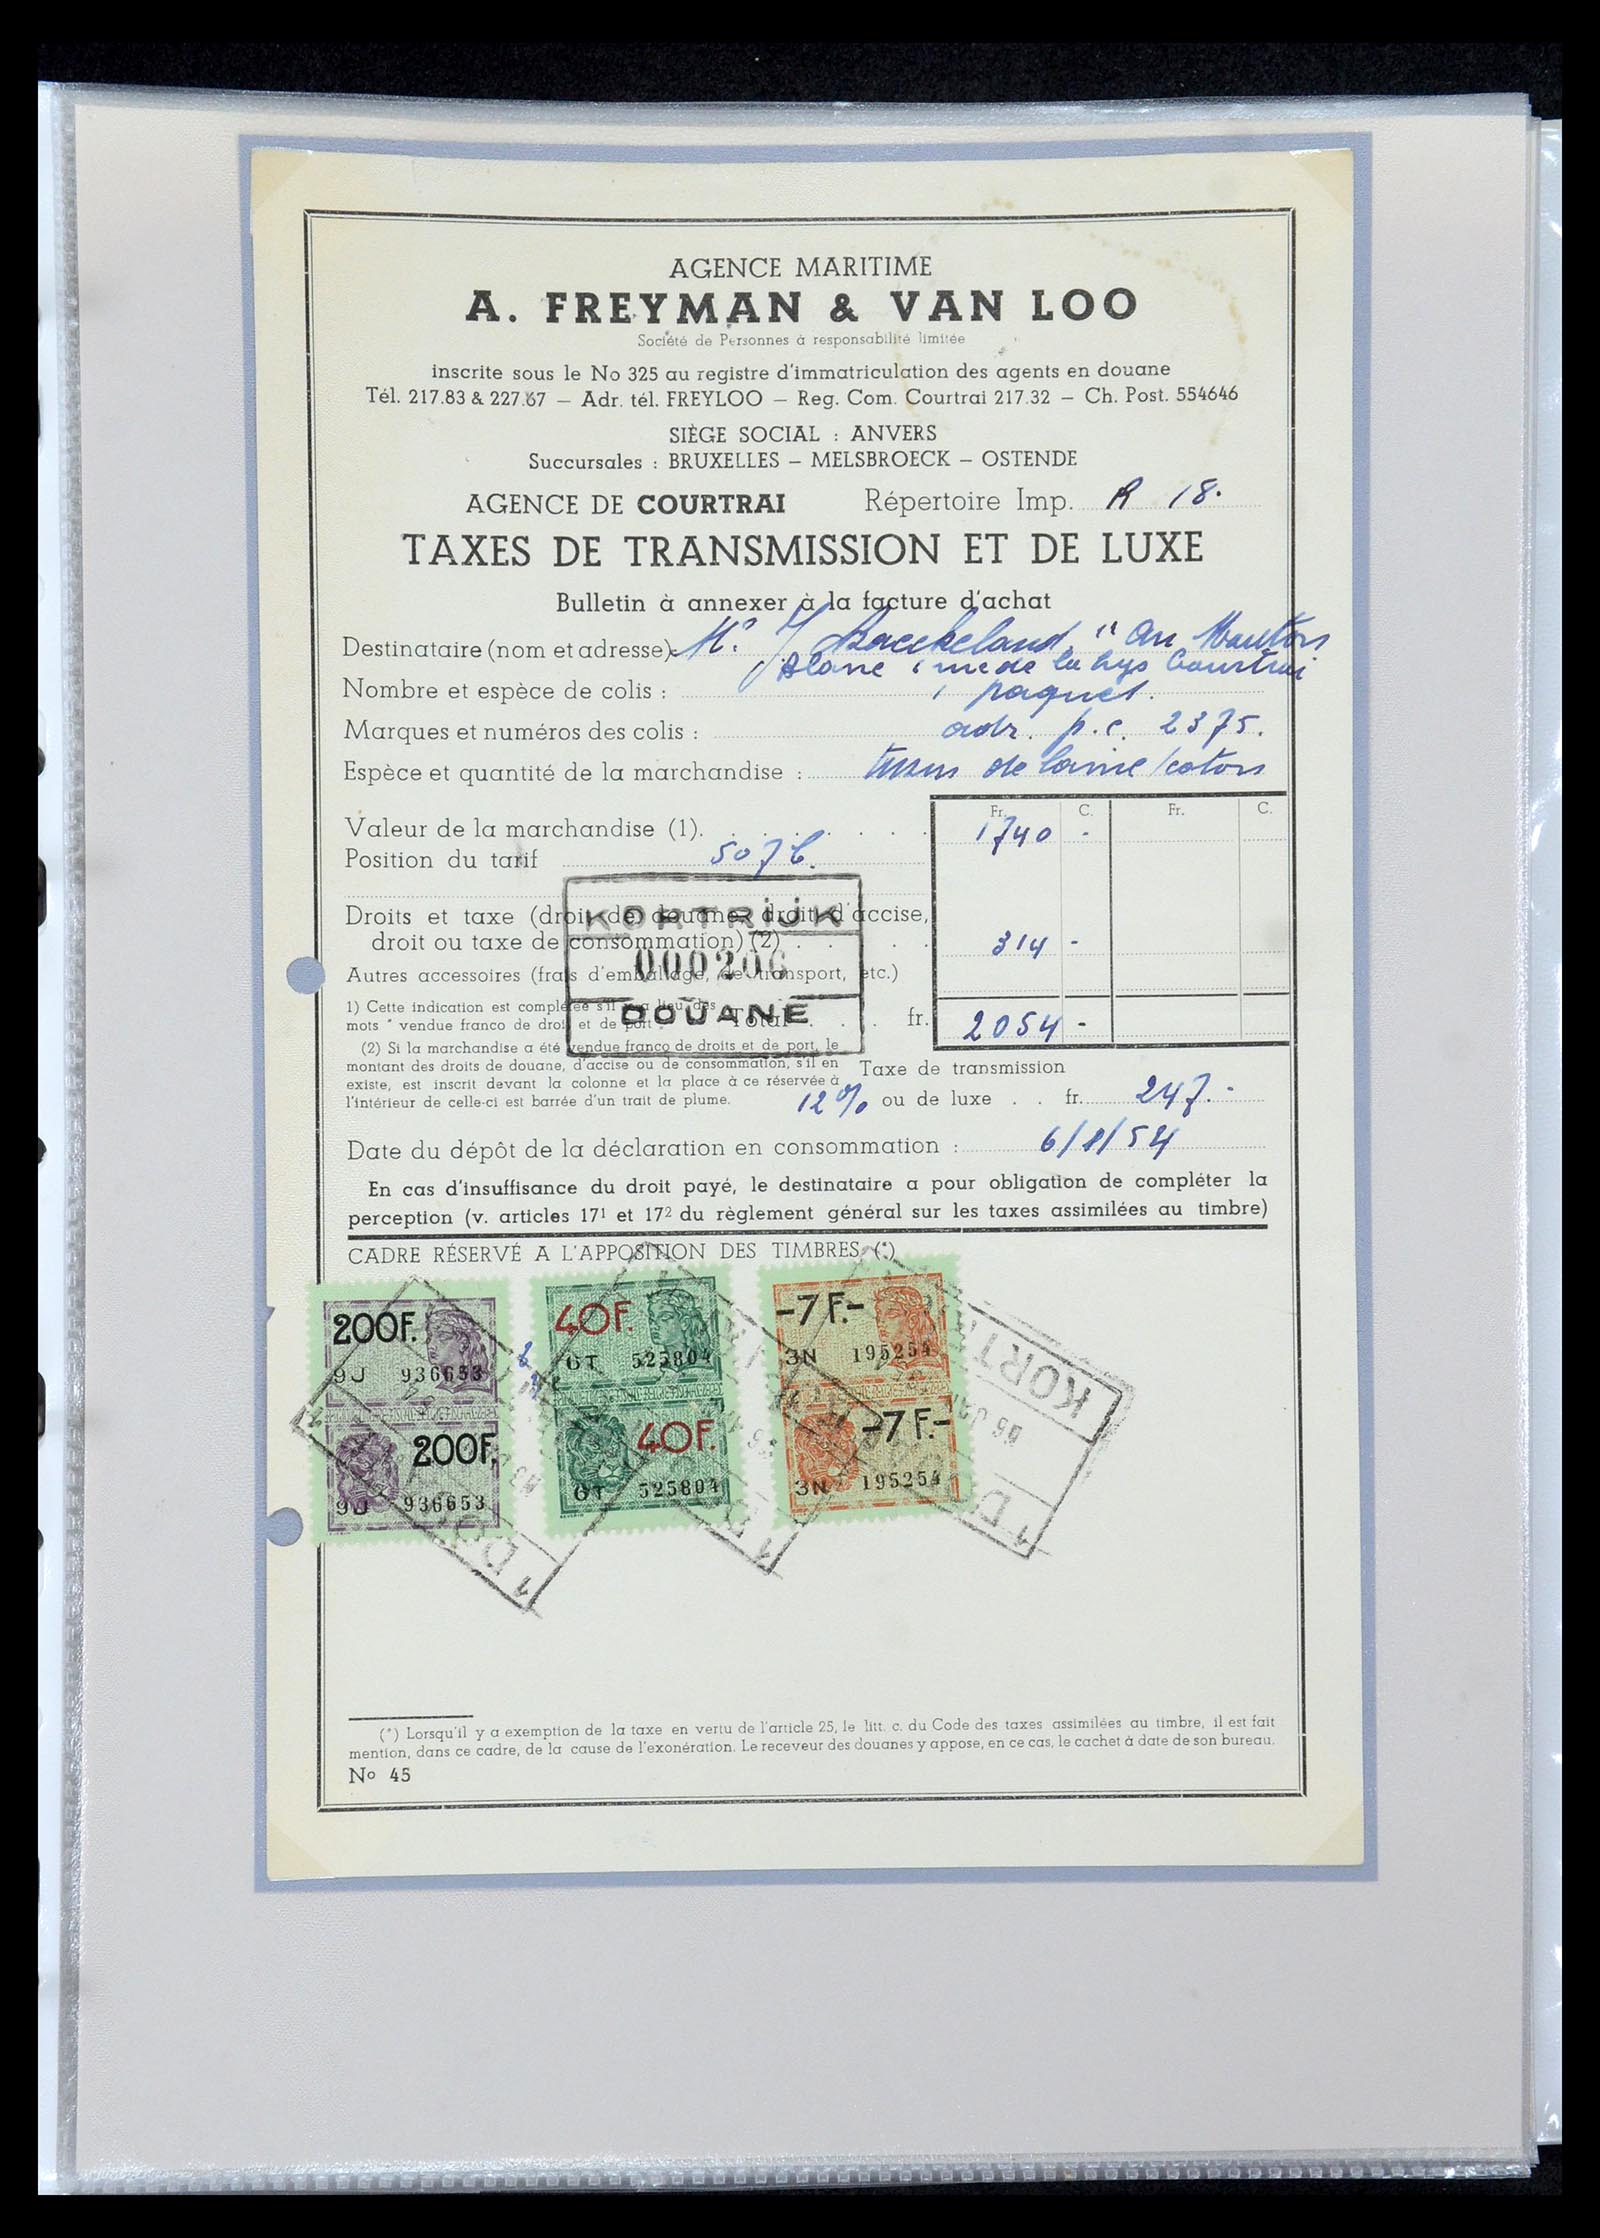 AGENCE MARITIME
A. FREYMAN & VAN LOO
Société de Personnes à responsabilité limitée
inscrite sous le No 325 au registre d'immatriculation des agents en douane
Tél. 217.83 & 227.67 – Adr. tél. FREYLOO – Reg. Com. Courtrai 217.32 – Ch. Post. 554646
SIÈGE SOCIAL : ANVERS
Succursales : BRUXELLES – MELSBROECK – OSTENDE
AGENCE DE COURTRAI Répertoire Imp. R 18.
TAXES DE TRANSMISSION ET DE LUXE
Bulletin à annexer à la facture d'achat
Destinataire (nom et adresse) Mr J Baeckeland, "Au Mouton
Blanc rue de la Lys Courtrai
Nombre et espèce de colis : 1 paquet.
Marques et numéros des colis : adr. p.c. 2375.
Espèce et quantité de la marchandise : tissus de laine/coton
Fr. C. Fr. C.
Valeur de la marchandise (1). 1740 -
Position du tarif 507 b.
Droits et taxe (droit de douane, droit d'accise,
droit ou taxe de consommation) (2) 314 -
Autres accessoires (frais d'emballage, de transport, etc.)
KORTRIJK
000206
DOUANE
1) Cette indication est complétée s'il y a lieu des
mots " vendue franco de droit et de port .
Total . . . fr. 2054 -
(2) Si la marchandise a été vendue franco de droits et de port, le
montant des droits de douane, d'accise ou de consommation, s'il en
existe, est inscrit devant la colonne et la place à ce réservée à
l'intérieur de celle-ci est barrée d'un trait de plume.
Taxe de transmission
12% ou de luxe . . fr. 247.-
Date du dépôt de la déclaration en consommation : 6/1/54
En cas d'insuffisance du droit payé, le destinataire a pour obligation de compléter la
perception (v. articles 17¹ et 17² du règlement général sur les taxes assimilées au timbre)
CADRE RÉSERVÉ A L'APPOSITION DES TIMBRES (*)
200F. 40F. -7F.-
9J 936653 GT 525804 3N 195254
200F. 40F. -7F.-
9J 936653 GT 525804 3N 195254
(*) Lorsqu'il y a exemption de la taxe en vertu de l'article 25, le litt. c. du Code des taxes assimilées au timbre, il est fait
mention, dans ce cadre, de la cause de l'exonération. Le receveur des douanes y appose, en ce cas, le cachet à date de son bureau.
No 45